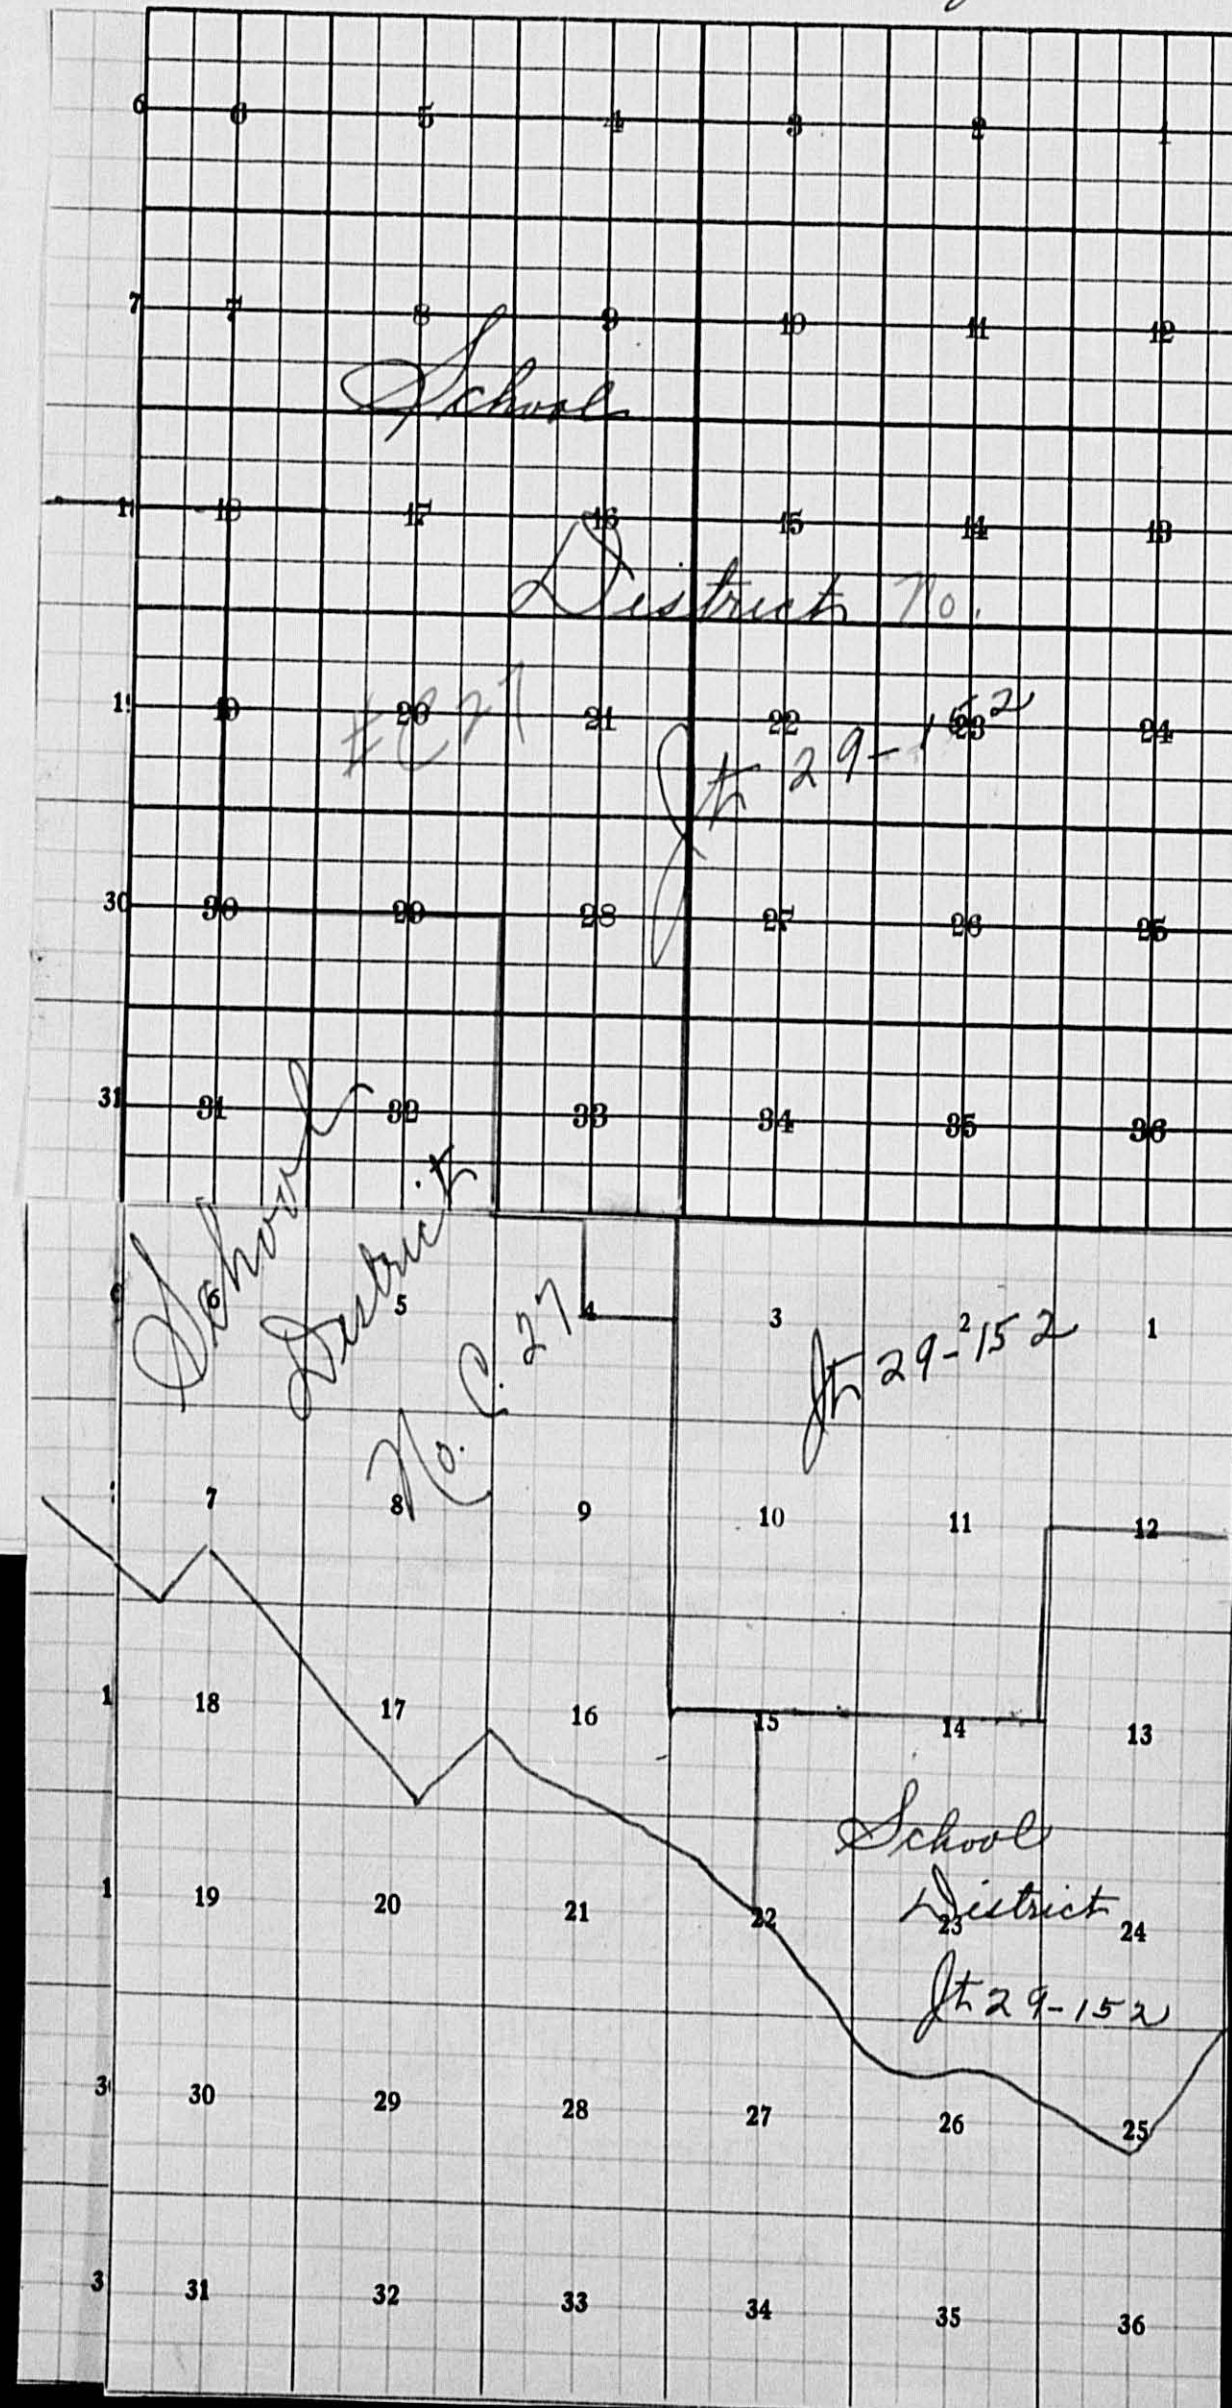 6 6 5 4 3 2 1
7 7 8 9 10 11 12
School
18 17 16 15 14 13
District No.
19 20 21 22 23 24
#C27
Jt 29-152
30 30 29 28 27 26 25
31 31 32 33 34 35 36
School
District
No. C. 27
6 5 4 3 2 1
Jt 29-152
7 8 9 10 11 12
18 17 16 15 14 13
School
19 20 21 22 23 24
District
Jt 29-152
30 29 28 27 26 25
31 32 33 34 35 36